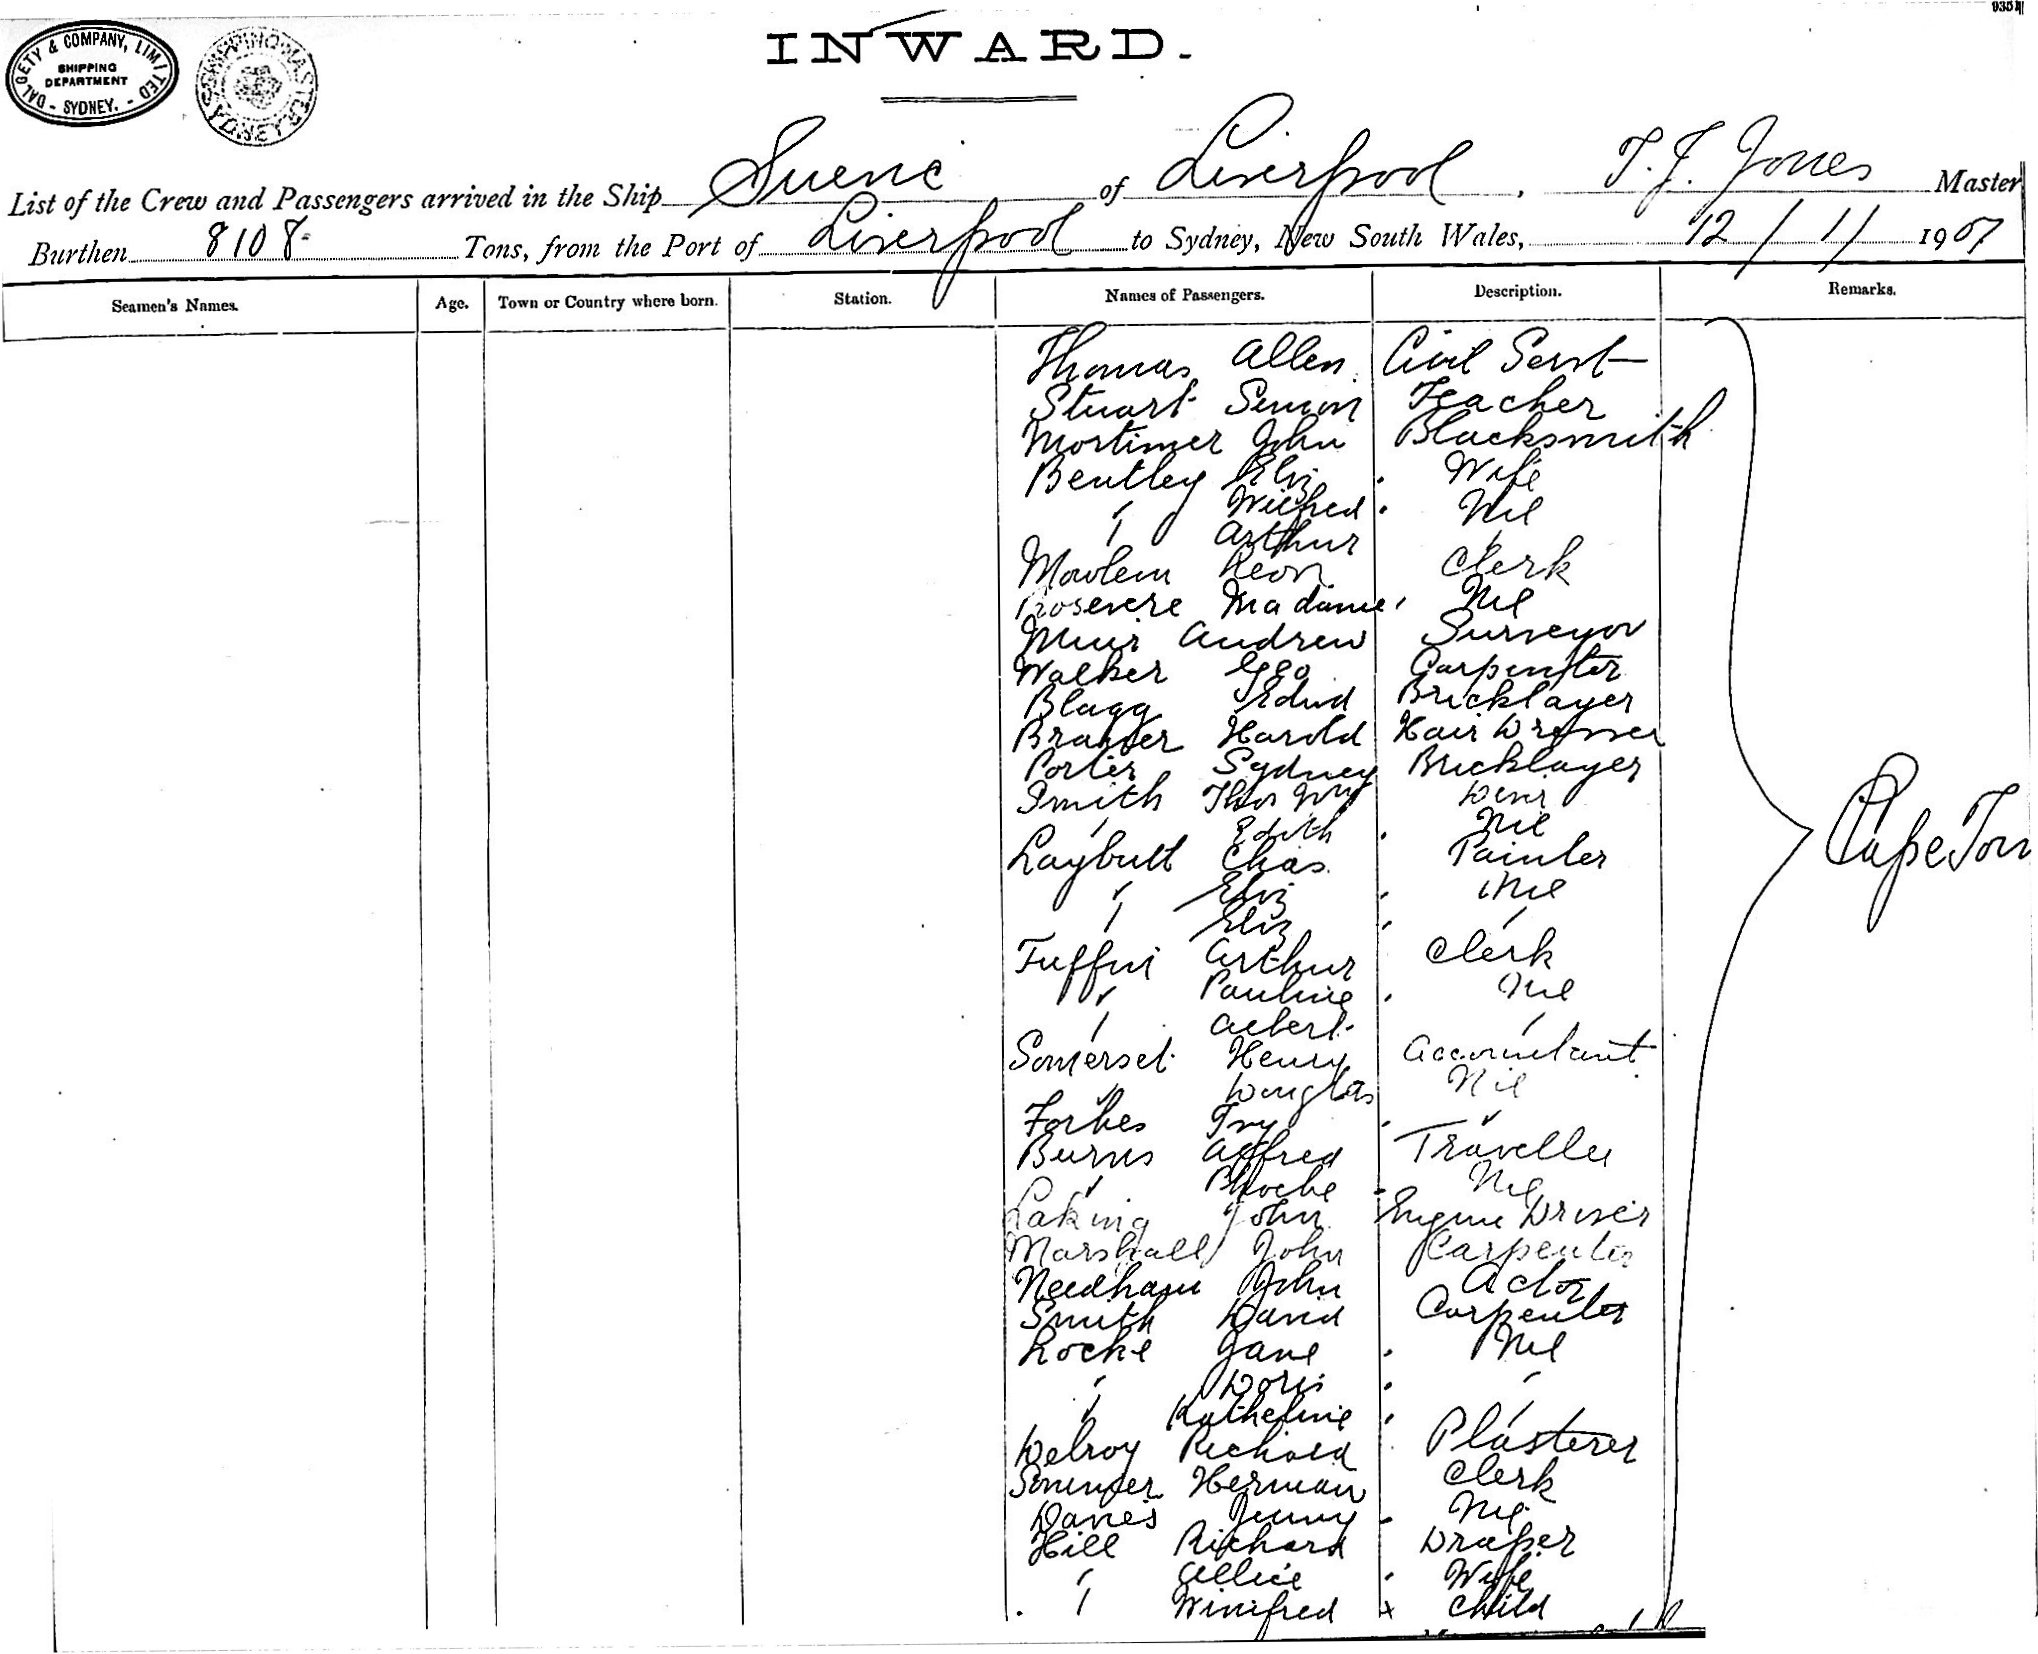 9354
INWARD.
DALGETY & COMPANY, LIMITED
SHIPPING
DEPARTMENT
- SYDNEY. -
SHIPPING MASTER
SYDNEY
List of the Crew and Passengers arrived in the Ship Suevic of Liverpool, T. J. Jones Master
Burthen 8108 Tons, from the Port of Liverpool to Sydney, New South Wales, 12 / 1 / 1907
Seamen's Names. Age. Town or Country where born. Station. Names of Passengers. Description. Remarks.
Thomas Allen Civil Servt
Stuart Simon Teacher
Mortimer John Blacksmith
Bentley Eliz Wife
" Wilfred Nil
" Arthur "
Mowlem Leon Clerk
Rosevere Madame Nil
Muir Andrew Surveyor
Walker Geo Carpenter
Blagg Edwd Bricklayer
Harold Hair Dresser
Porter Sydney Bricklayer
Smith Thos Wm
" Edith Nil
Laybutt Chas. Painter
" Eliz Nil
" Eliz "
Tuffin Arthur Clerk
" Pauline Nil
" Albert "
Somerset Henry Accountant
" Douglas Nil
Forbes Ivy "
Burns Alfred Traveller
" Phoebe Nil
Laking John Engine Driver
Marshall John Carpenter
Needham John Actor
Smith David Carpenter
Locke Jane Nil
" Doris "
" Katherine "
Delroy Richard Plasterer
Herman Clerk
Davies Jenny Nil
Hill Richard Draper
" Wife
" Winifred x Child
Cape Town